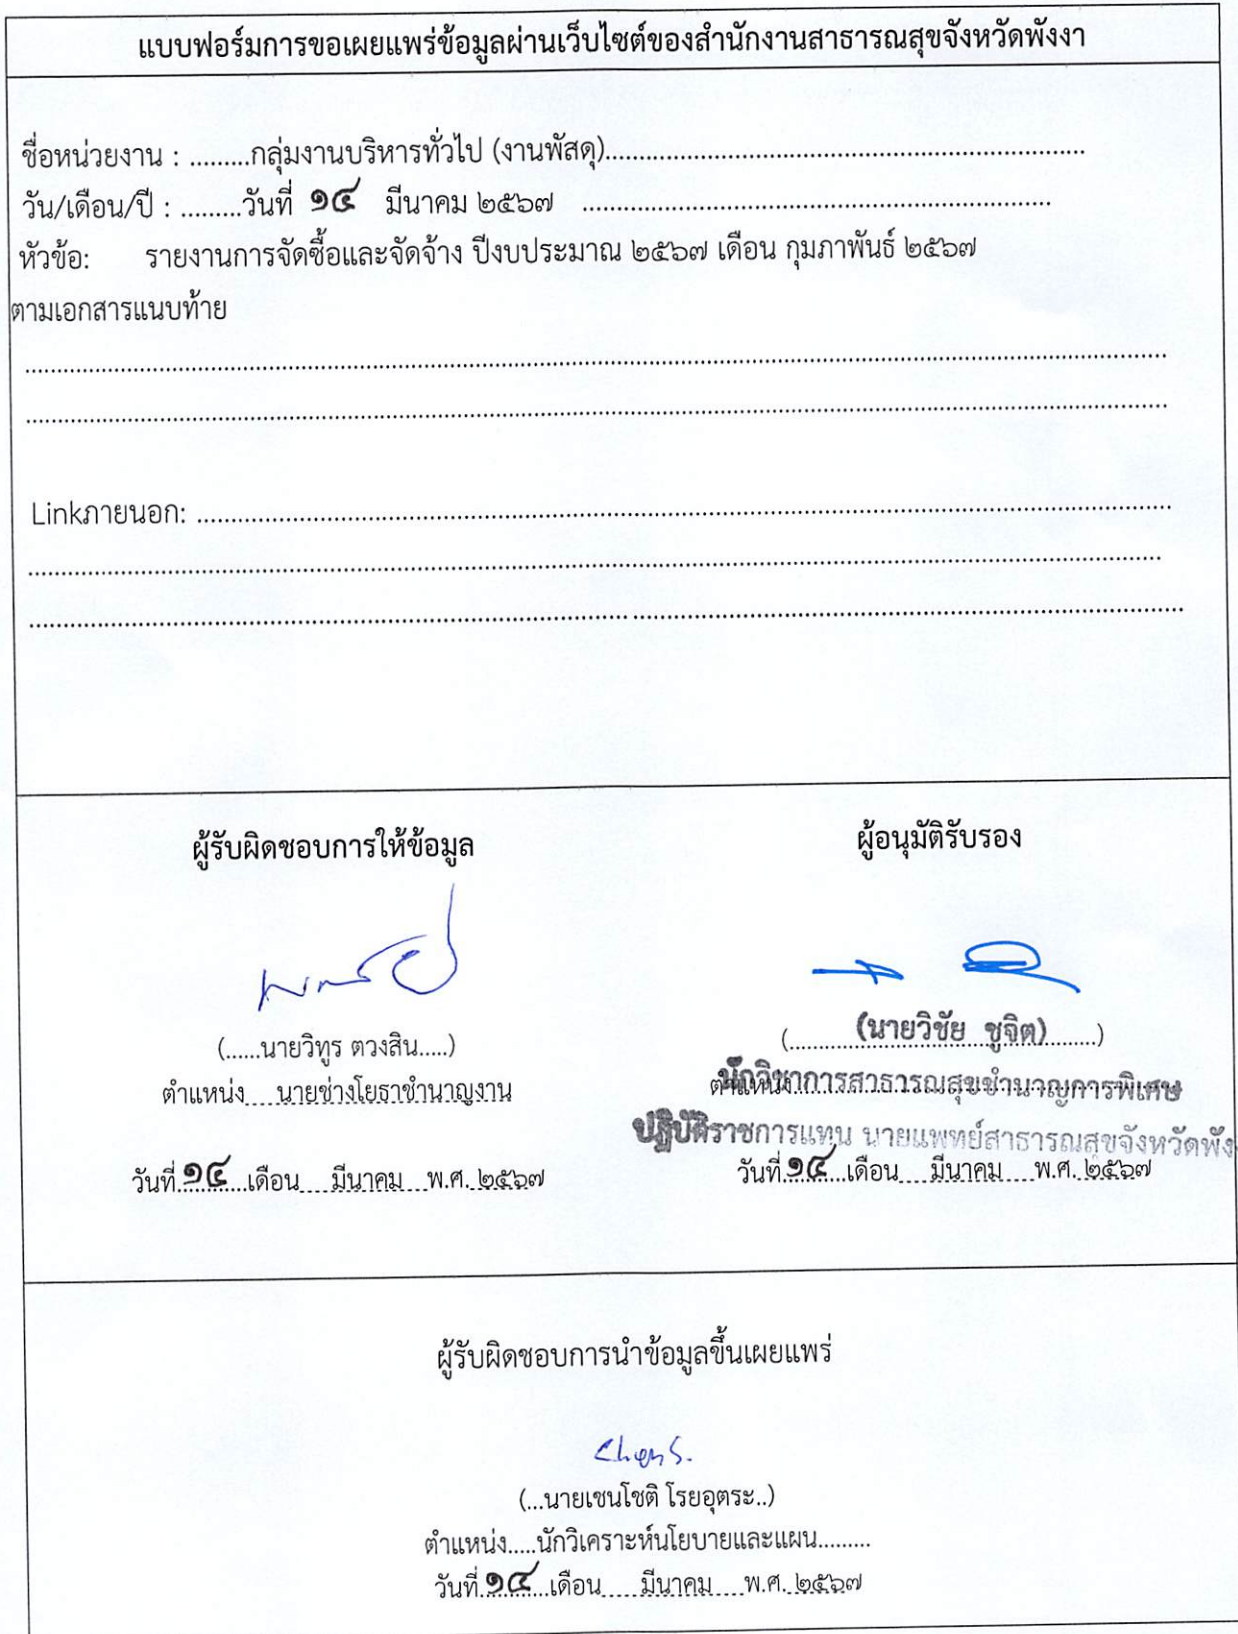 แบบฟอร์มการขอเผยแพร่ข้อมูลผ่านเว็บไซต์ของสำนักงานสาธารณสุขจังหวัดพังงา
ชื่อหน่วยงาน : .........กลุ่มงานบริหารทั่วไป (งานพัสดุ)........................................................................
วัน/เดือน/ปี : .........วันที่ ๑๔ มีนาคม ๒๕๖๗ ......................................................................
หัวข้อ: รายงานการจัดซื้อและจัดจ้าง ปีงบประมาณ ๒๕๖๗ เดือน กุมภาพันธ์ ๒๕๖๗
ตามเอกสารแนบท้าย
Linkภายนอก: ..................................................................................................
ผู้รับผิดชอบการให้ข้อมูล
(......นายวิทูร ตวงสิน.....)
ตำแหน่ง....นายช่างโยธาชำนาญงาน
วันที่..๑๔...เดือน....มีนาคม...พ.ศ. ๒๕๖๗
ผู้อนุมัติรับรอง
(..........(นายวิชัย ชูจิต)..........)
ตำแหน่ง นักวิชาการสาธารณสุขชำนาญการพิเศษ
ปฏิบัติราชการแทน นายแพทย์สาธารณสุขจังหวัดพัง
วันที่..๑๔...เดือน....มีนาคม....พ.ศ. ๒๕๖๗
ผู้รับผิดชอบการนำข้อมูลขึ้นเผยแพร่
(...นายเชนโชติ โรยอุตระ..)
ตำแหน่ง.....นักวิเคราะห์นโยบายและแผน.........
วันที่..๑๔...เดือน.....มีนาคม....พ.ศ. ๒๕๖๗